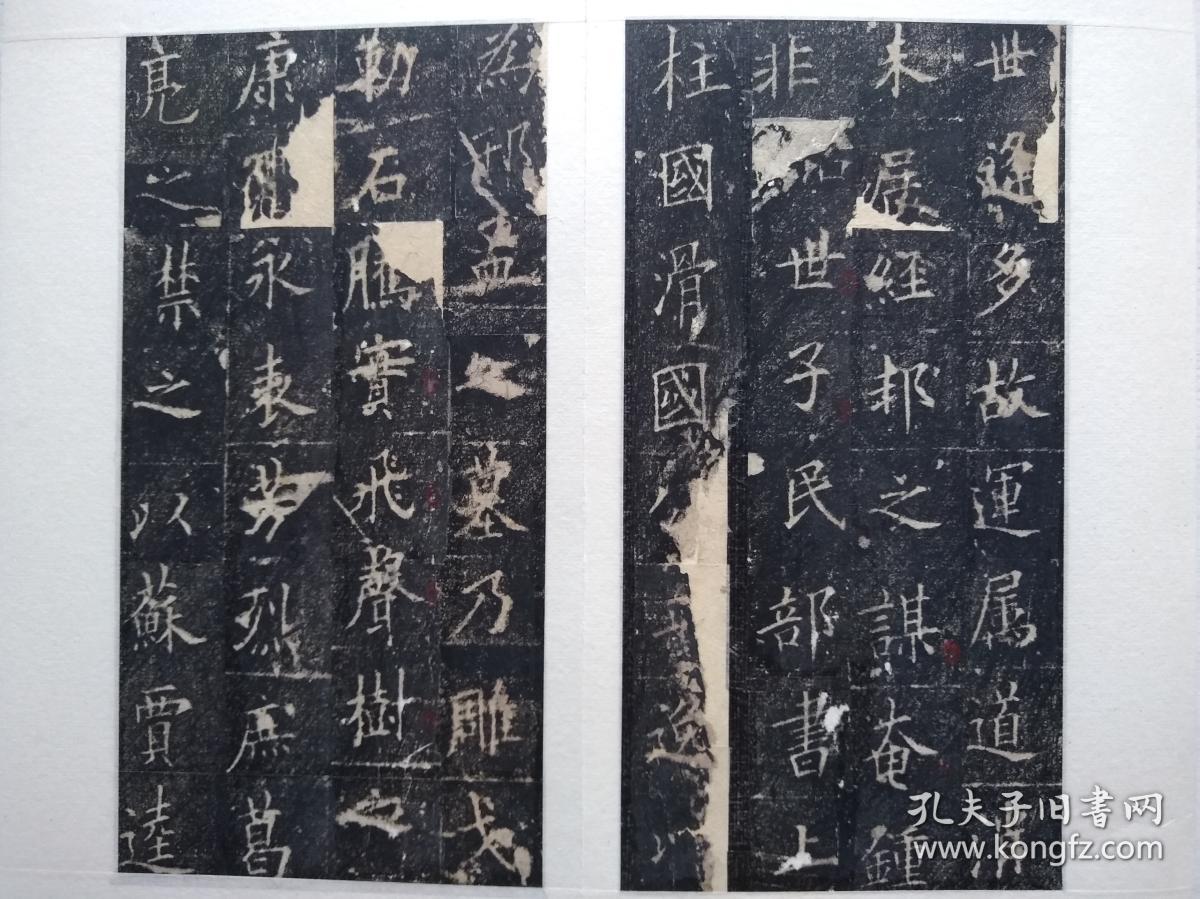 世逢多故運属道消
未展經邦之謀奄鍾
非世子民部書上
柱國滑國逸
為邢孟之墓乃雕戈
勒石騰實飛聲樹之
康永表芳烈庶葛
亮之禁之以蘇賈逵
孔夫子旧書网
www.kongfz.com